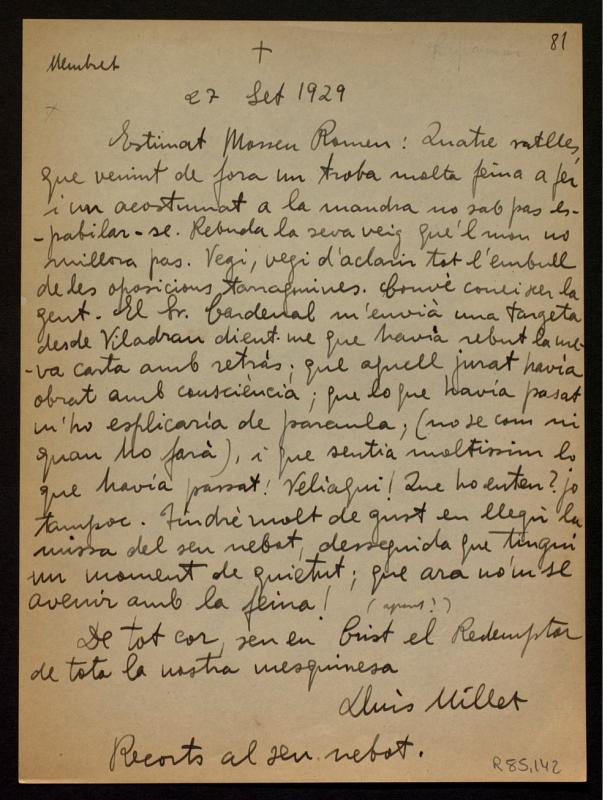 81
Membret
+
27 Set 1929
Estimat Mossen Romeu: Quatre ratlles,
que venint de fora un troba molta feina a fer
i un acostumat a la mandra no sab pas es-
-pabilar-se. Rebuda la seva veig que'l mon no
millora pas. Vegi, vegi d'aclarir tot l'embull
de les oposicions tarragonines. Convè coneixer la
gent. El Sr. Cardenal m'envià una targeta
desde Viladrau dient-me que havia rebut la me-
-va carta amb retràs; que aquell jurat havía
obrat amb consciencia; que lo que havía pasat
m'ho esplicaría de paraula; (no se com ni
quan ho farà), i que sentia moltissim lo
que havía passat! Veliaqui! Que ho enten? jo
tampoc. Tindré molt de gust en llegir la
missa del seu nebot, desseguida que tingui
un moment de quietut; que ara no'm se
avenir amb la feina!
De tot cor, seu en Crist el Redemptor
de tota la nostra mesquinesa
Lluis Millet
Recorts al seu nebot.
R 85,142